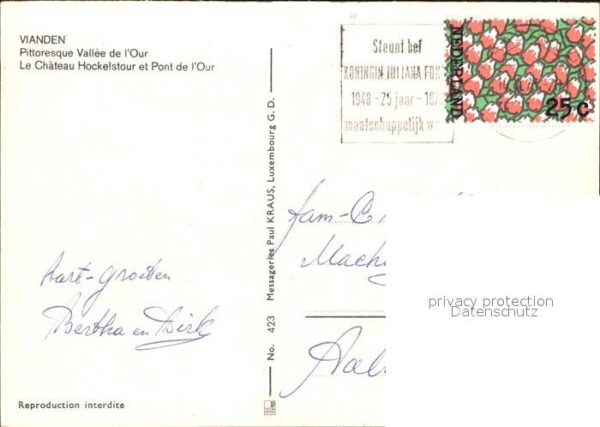 VIANDEN
Pittoresque Vallée de l'Our
Le Château Hockelstour et Pont de l'Our
Steunt het
KONINGIN JULIANA FON
1948 - 25 jaar - 197
maatschappelijk w
NEDERLAND
25 c
Messageries Paul KRAUS, Luxembourg G. D.
No. 423
fam-C
Mach
Aal
Hart-Groeten
Bertha en Dirk
privacy protection
Datenschutz
Reproduction interdite